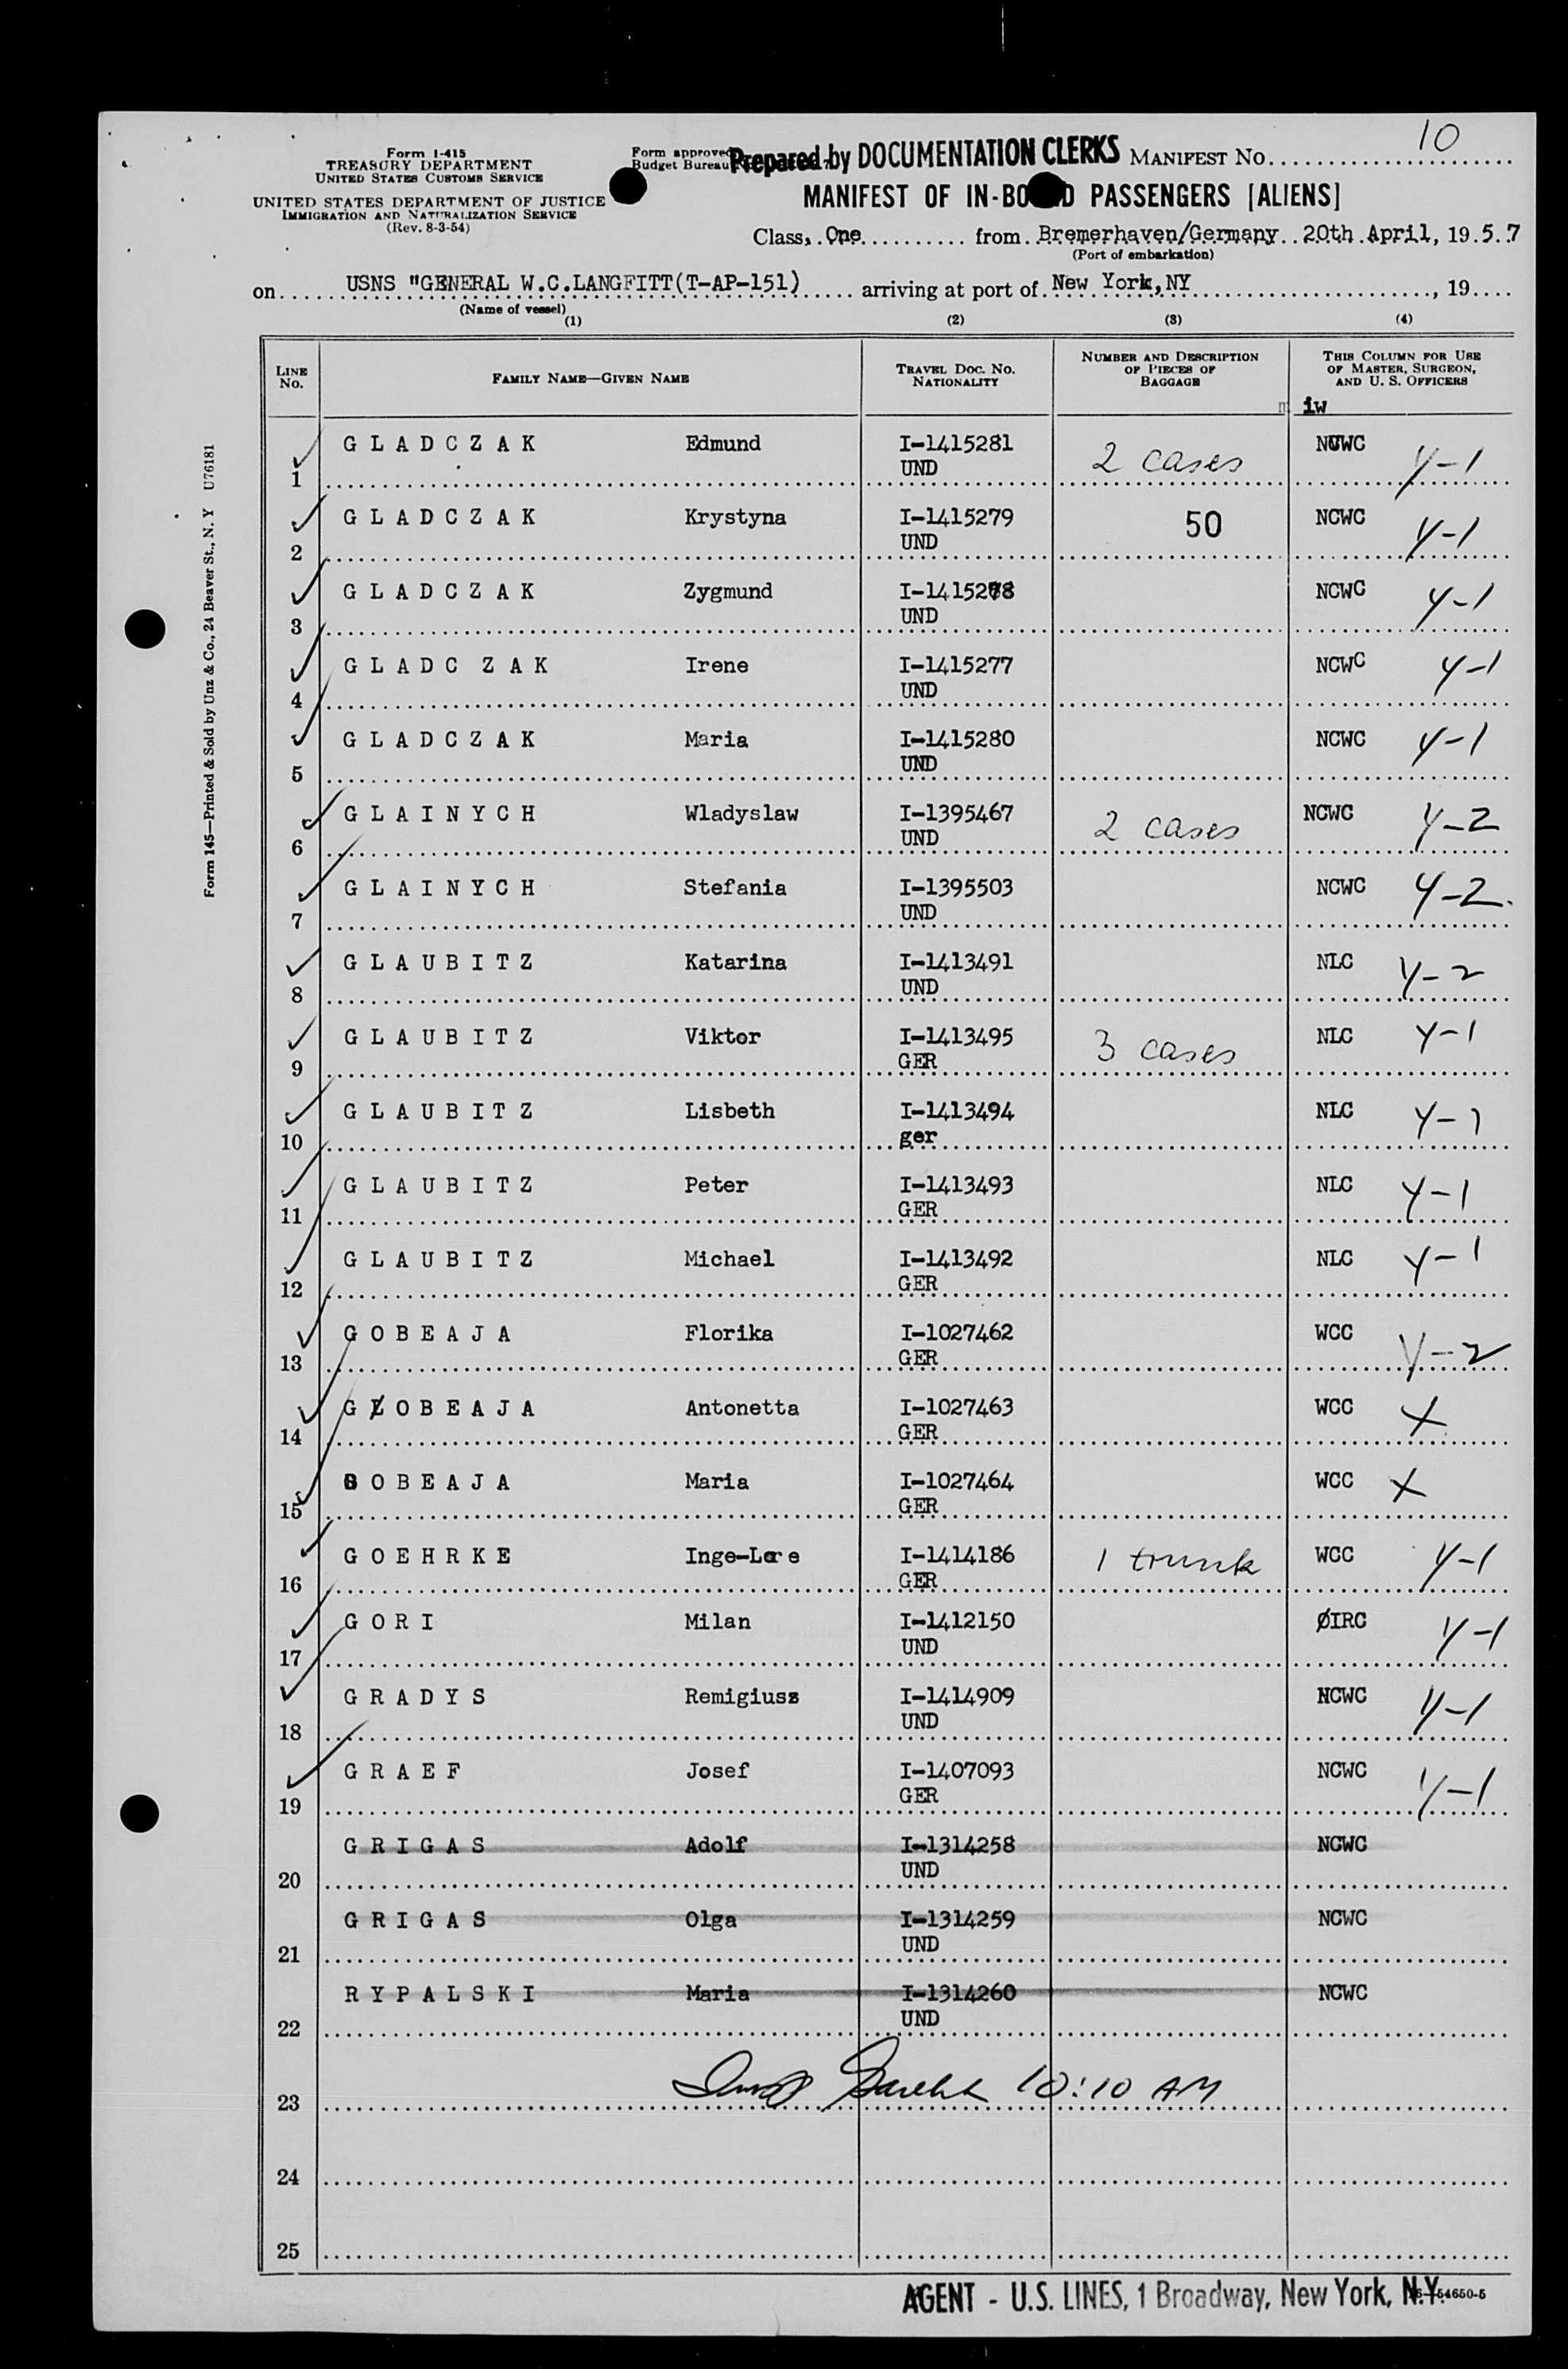 10
Form I-415
TREASURY DEPARTMENT
UNITED STATES CUSTOMS SERVICE
UNITED STATES DEPARTMENT OF JUSTICE
IMMIGRATION AND NATURALIZATION SERVICE
(Rev. 8-3-54)
Form approved
Budget Bureau
Prepared by DOCUMENTATION CLERKS MANIFEST NO.
MANIFEST OF IN-BOUND PASSENGERS [ALIENS]
Class, One from Bremerhaven/Germany 20th April, 1957
(Port of embarkation)
on USNS "GENERAL W.C.LANGFITT(T-AP-151) arriving at port of New York, NY, 19
(Name of vessel)
(1) (2) (3) (4)
LINE NO. FAMILY NAME—GIVEN NAME TRAVEL DOC. NO. NATIONALITY NUMBER AND DESCRIPTION OF PIECES OF BAGGAGE THIS COLUMN FOR USE OF MASTER, SURGEON, AND U. S. OFFICERS
iw
1 GLADCZAK Edmund I-1415281 UND 2 cases NCWC Y-1
2 GLADCZAK Krystyna I-1415279 UND 50 NCWC Y-1
3 GLADCZAK Zygmund I-1415278 UND NCWC Y-1
4 GLADC ZAK Irene I-1415277 UND NCWC Y-1
5 GLADCZAK Maria I-1415280 UND NCWC Y-1
6 GLAINYCH Wladyslaw I-1395467 UND 2 cases NCWC Y-2
7 GLAINYCH Stefania I-1395503 UND NCWC Y-2
8 GLAUBITZ Katarina I-1413491 UND NLC Y-2
9 GLAUBITZ Viktor I-1413495 GER 3 cases NLC Y-1
10 GLAUBITZ Lisbeth I-1413494 ger NLC Y-1
11 GLAUBITZ Peter I-1413493 GER NLC Y-1
12 GLAUBITZ Michael I-1413492 GER NLC Y-1
13 GOBEAJA Florika I-1027462 GER WCC Y-2
14 GLOBEAJA Antonetta I-1027463 GER WCC X
15 GOBEAJA Maria I-1027464 GER WCC X
16 GOEHRKE Inge-Lore I-1414186 GER 1 trunk WCC Y-1
17 GORI Milan I-1412150 UND IRC Y-1
18 GRADYS Remigiusz I-1414909 UND NCWC Y-1
19 GRAEF Josef I-1407093 GER NCWC Y-1
20 GRIGAS Adolf I-1314258 UND NCWC
21 GRIGAS Olga I-1314259 UND NCWC
22 RYPALSKI Maria I-1314260 UND NCWC
23 10:10 AM
24
25
AGENT - U.S. LINES, 1 Broadway, New York, N.Y.
16-54650-5
Form 145—Printed & Sold by Unz & Co., 24 Beaver St., N. Y U76181